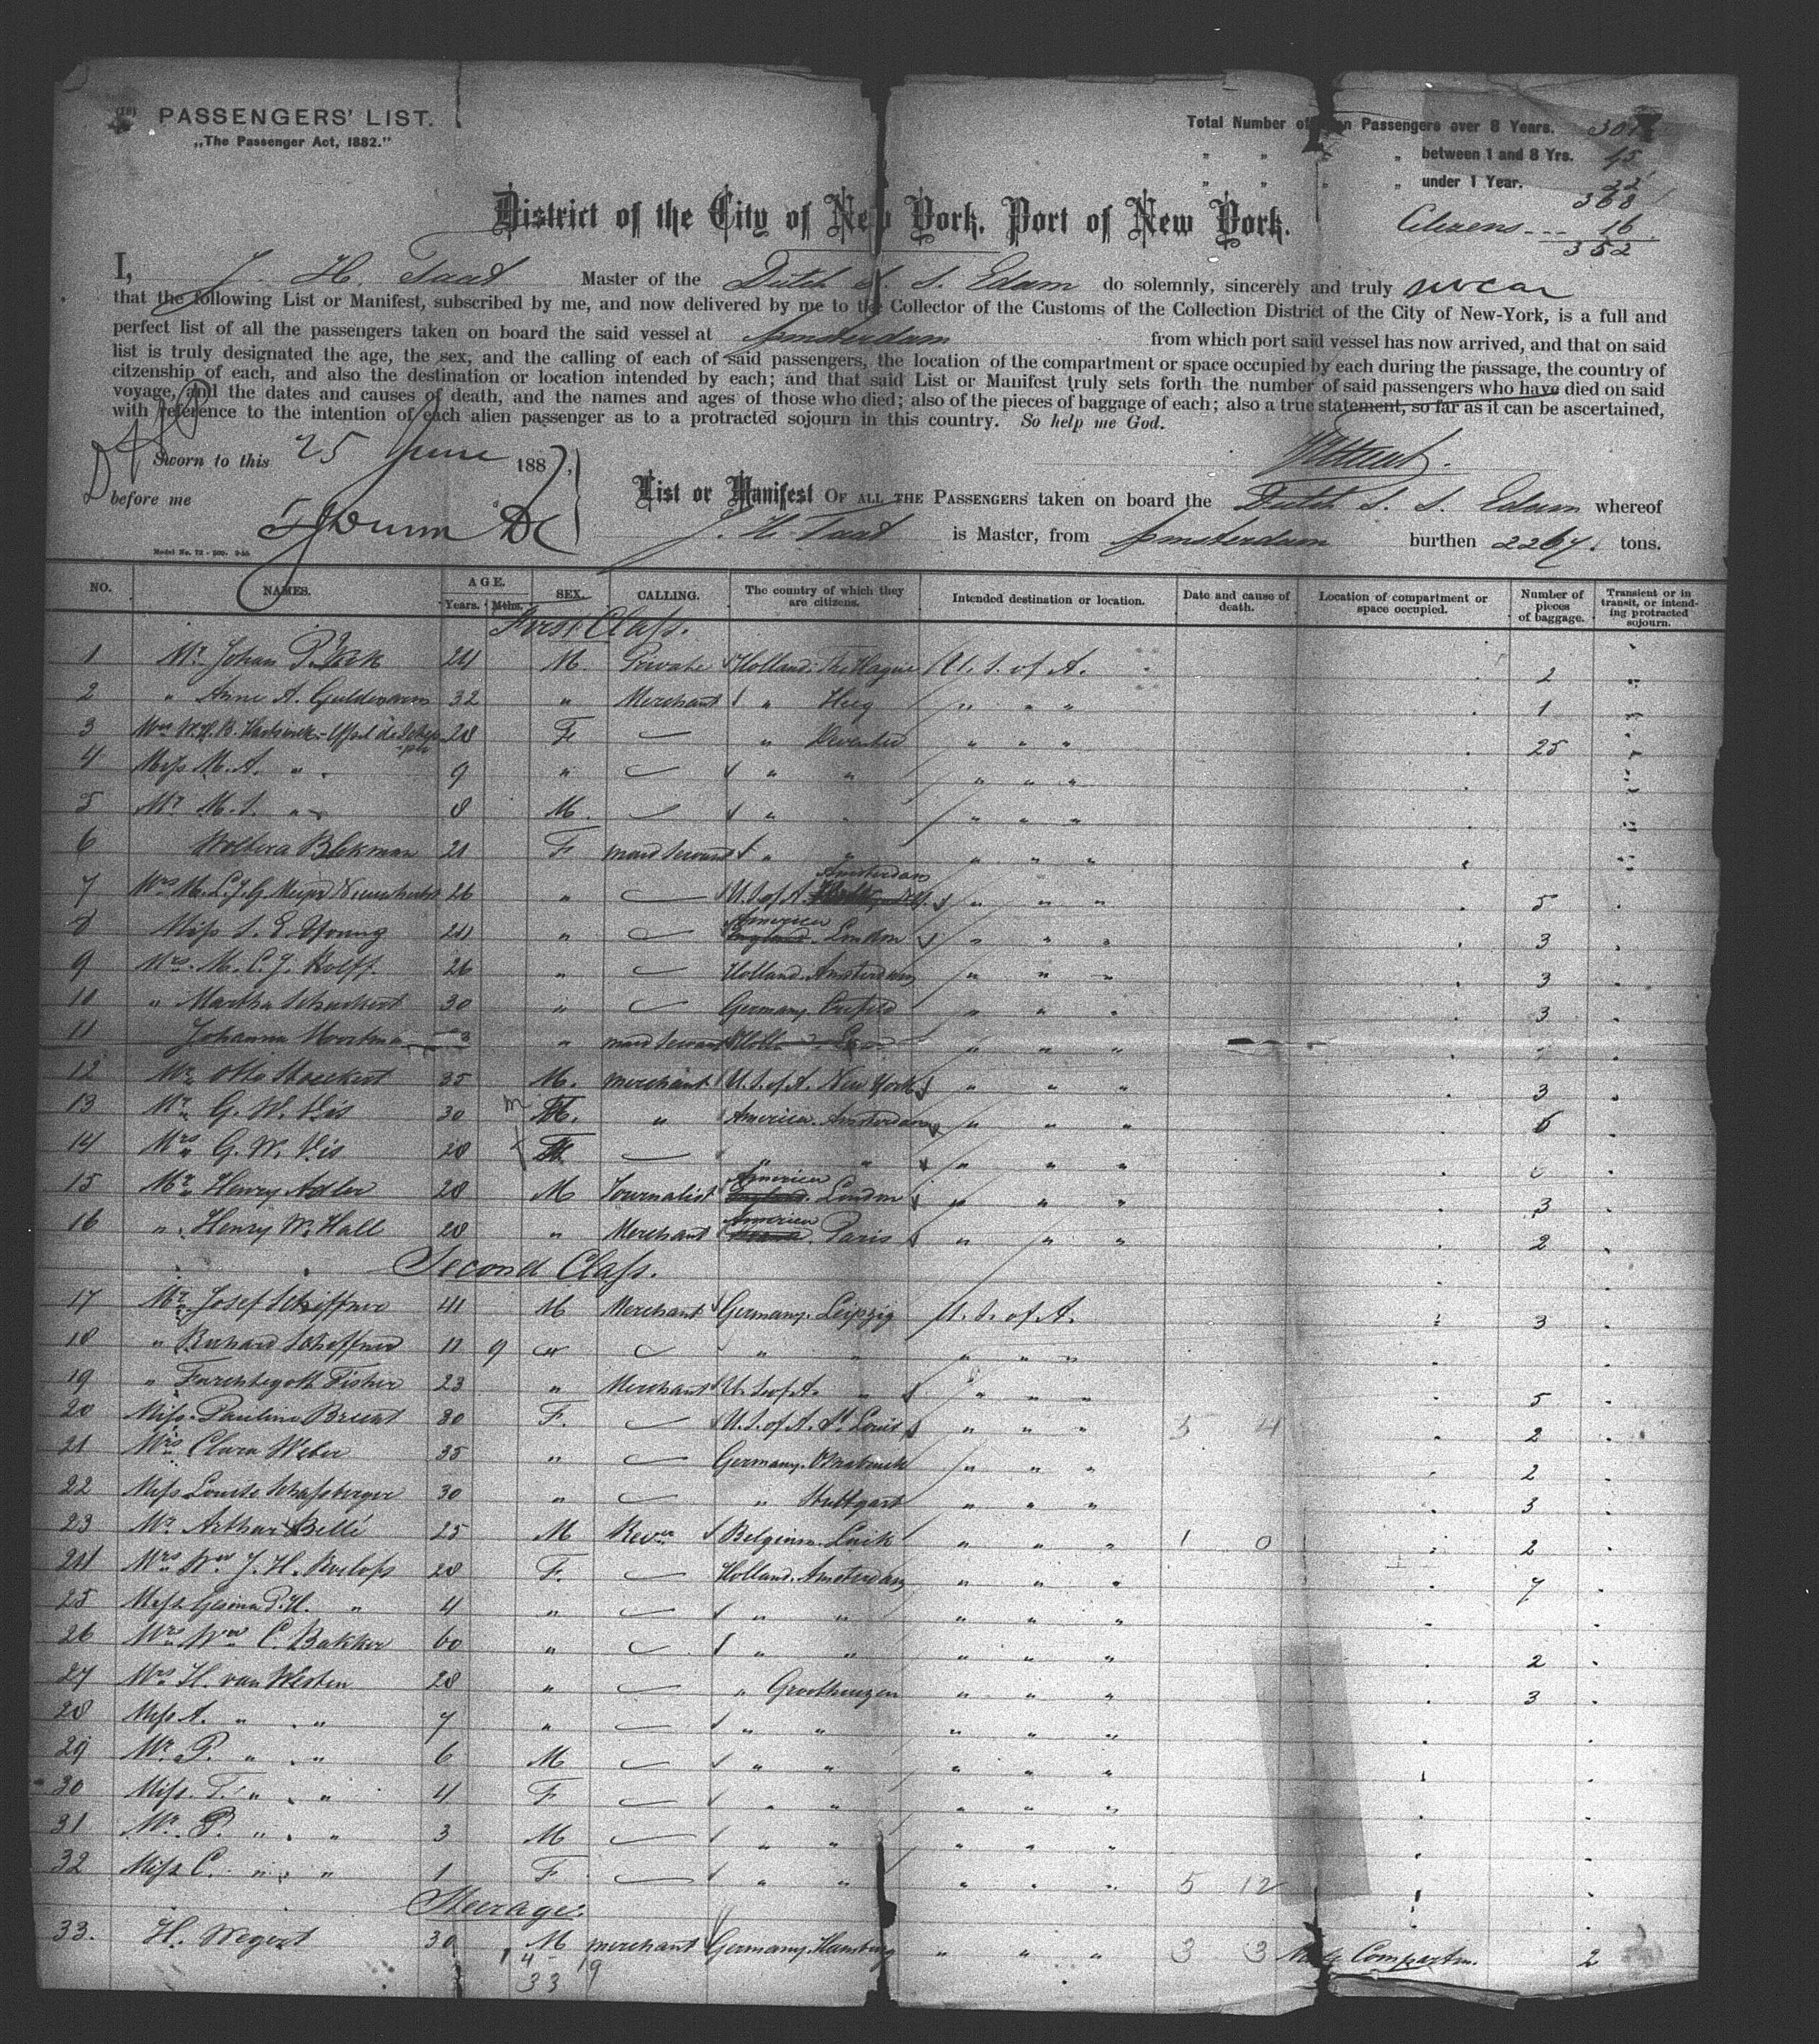 PASSENGERS' LIST.
„The Passenger Act, 1882."
Total Number of Passengers over 8 Years. 301
" " " " between 1 and 8 Yrs. 45
" " " " under 1 Year. 22
368
Citizens --- 16
352
District of the City of New York, Port of New York.
I, J. H. Taat Master of the Dutch S. S. Edam do solemnly, sincerely and truly swear
that the following List or Manifest, subscribed by me, and now delivered by me to the Collector of the Customs of the Collection District of the City of New-York, is a full and
perfect list of all the passengers taken on board the said vessel at Amsterdam from which port said vessel has now arrived, and that on said
list is truly designated the age, the sex, and the calling of each of said passengers, the location of the compartment or space occupied by each during the passage, the country of
citzenship of each, and also the destination or location intended by each; and that said List or Manifest truly sets forth the number of said passengers who have died on said
voyage, and the dates and causes of death, and the names and ages of those who died; also of the pieces of baggage of each; also a true statement, so far as it can be ascertained,
with reference to the intention of each alien passenger as to a protracted sojourn in this country. So help me God.
Sworn to this 25 June 1887,
before me
List or Manifest OF ALL THE PASSENGERS taken on board the Dutch S. S. Edam whereof
J. H. Taat is Master, from Amsterdam burthen 2267. tons.
Model No. 72
NO. NAMES. AGE. Years. Mths. SEX. CALLING. The country of which they are citizens. Intended destination or location. Date and cause of death. Location of compartment or space occupied. Number of pieces of baggage. Transient or in transit, or intending protracted sojourn.
First Class.
1 Mr. Johan P. 24 M. Private Holland. The Hague U. S. of A. 2 "
2 " Anne A. 32 " Merchant " Heeg " " " 1 "
3 Mrs 28 F. " Deventer " " " 25 "
4 Miss M. A. " " 9 " " " " " " "
5 Mr M. S. " " 8 M. " " " " " "
6 Woltera Blekman 21 F maid servant " " " " " "
7 Mrs M. L. J. G. Meyer 26 " U. S. of A. Amsterdam " " " 5
8 Miss S. E. Young 24 " America England. London " " " 3
9 Mrs. M. C. J. Wolff 26 " Holland. Amsterdam " " " 3
10 " Martha Schuchert 30 " Germany. Crefeld " " " 3
11 Johanna " maid servant " " "
12 Mr. Otto 35 M. merchant U. S. of A. New York " " " 3
13 Mr. G. W. Vis 30 M. " America. Amsterdam " " " 6
14 Mrs G. W. Vis 28 F " " " " "
15 Mr. Henry Adler 28 M Journalist America England. London " " " 3
16 " Henry W. Hall 28 " Merchant America Paris " " " 2
Second Class.
17 Mr. Josef Schiffner 41 M Merchant Germany. Leipzig U. S. of A. 3
18 " Richard Schiffner 11 9 " " " " " "
19 " Furchtegott Fisher 23 " Merchant U. S. of A. " " " " 5
20 Miss Pauline 30 F. U. S. of A. St. Louis " " " 5 4 2
21 Mrs Clara Weber 35 " Germany. Osnabruck " " " 2
22 Miss Louise Schafsberger 30 " " Stuttgart " " " 3
23 Mr Arthur Bellé 25 M Rev. Belgium. Luik " " " 1 0 2
24 Mrs Wed J. H. Roelofs 28 F. Holland. Amsterdam " " " 7
25 Miss Gesina P. H. " 4 " " " " " "
26 Mrs Wed C. Bakker 60 " " " " " " 2
27 Mrs H. van Westen 28 " " Groothuizen " " " 3
28 Miss A. " " 7 " " " " " "
29 Mr. P. " " 6 M " " " " "
30 Miss T. " " 4 F " " " " "
31 Mr. P. " " 3 M " " " " "
32 Miss C. " " 1 F " " " " " 5 12
Steerage.
33. H. Wegert 30 M merchant Germany. Hamburg " " " 3 3 Compartm. 2
1 4 19
33